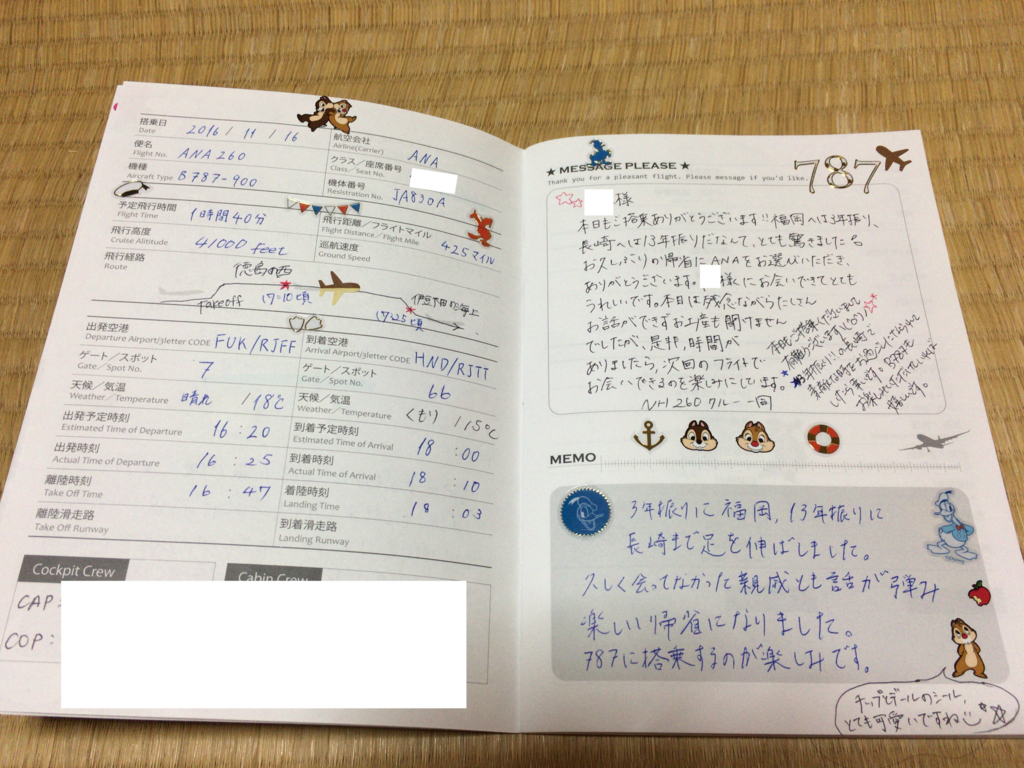 搭乗日
Date
2016 / 11 / 16
航空会社
Airline(Carrier)
ANA
便名
Flight No.
ANA 260
クラス／座席番号
Class／Seat No.
機種
Aircraft Type
B787-900
機体番号
Resistration No.
JA890A
予定飛行時間
Flight Time
1時間40分
飛行距離／フライトマイル
Flight Distance／Flight Mile
425マイル
飛行高度
Cruise Altitude
41000 feet
巡航速度
Ground Speed
飛行経路
Route
Takeoff
徳島の西
17:10頃
伊豆半田の海上
17:25頃
出発空港
Departure Airport/3letter CODE
FUK/RJFF
到着空港
Arrival Airport/3letter CODE
HND/RJTT
ゲート／スポット
Gate／Spot No.
7
ゲート／スポット
Gate／Spot No.
66
天候／気温
Weather／Temperature
晴れ / 18℃
天候／気温
Weather／Temperature
くもり / 15℃
出発予定時刻
Estimated Time of Departure
16 : 20
到着予定時刻
Estimated Time of Arrival
18 : 00
出発時刻
Actual Time of Departure
16 : 25
到着時刻
Actual Time of Arrival
18 : 10
離陸時刻
Take Off Time
16 : 47
着陸時刻
Landing Time
18 : 03
離陸滑走路
Take Off Runway
到着滑走路
Landing Runway
Cockpit Crew
Cabin Crew
CAP:
COP:
★ MESSAGE PLEASE ★
Thank you for a pleasant flight. Please message if you'd like.
787
様
本日もご搭乗ありがとうございます!!福岡へは3年振り、
長崎へは13年振りだなんて、とても驚きました
お久しぶりの帰省にANAをお選びいただき、
ありがとうございます。 様にお会いできてとても
うれしいです。本日は残念ながらたくさん
お話ができずお土産も聞けません
でしたが、是非、時間が
ありましたら、次回のフライトで
お会いできるのを楽しみにしています。
NH260クルー一同
本日もご搭乗くださいまして
有難うございます(^o^)/
13年振り!!の長崎で
素敵な時をお過ごしになられて
いけたら幸です。
嬉しいです。
MEMO
3年振りに福岡, 13年振りに
長崎まで足を伸ばしました。
久しく会ってなかった親戚とも話が弾み
楽しい帰省になりました。
787に搭乗するのが楽しみです。
チップとデールのシール、
とても可愛いですね